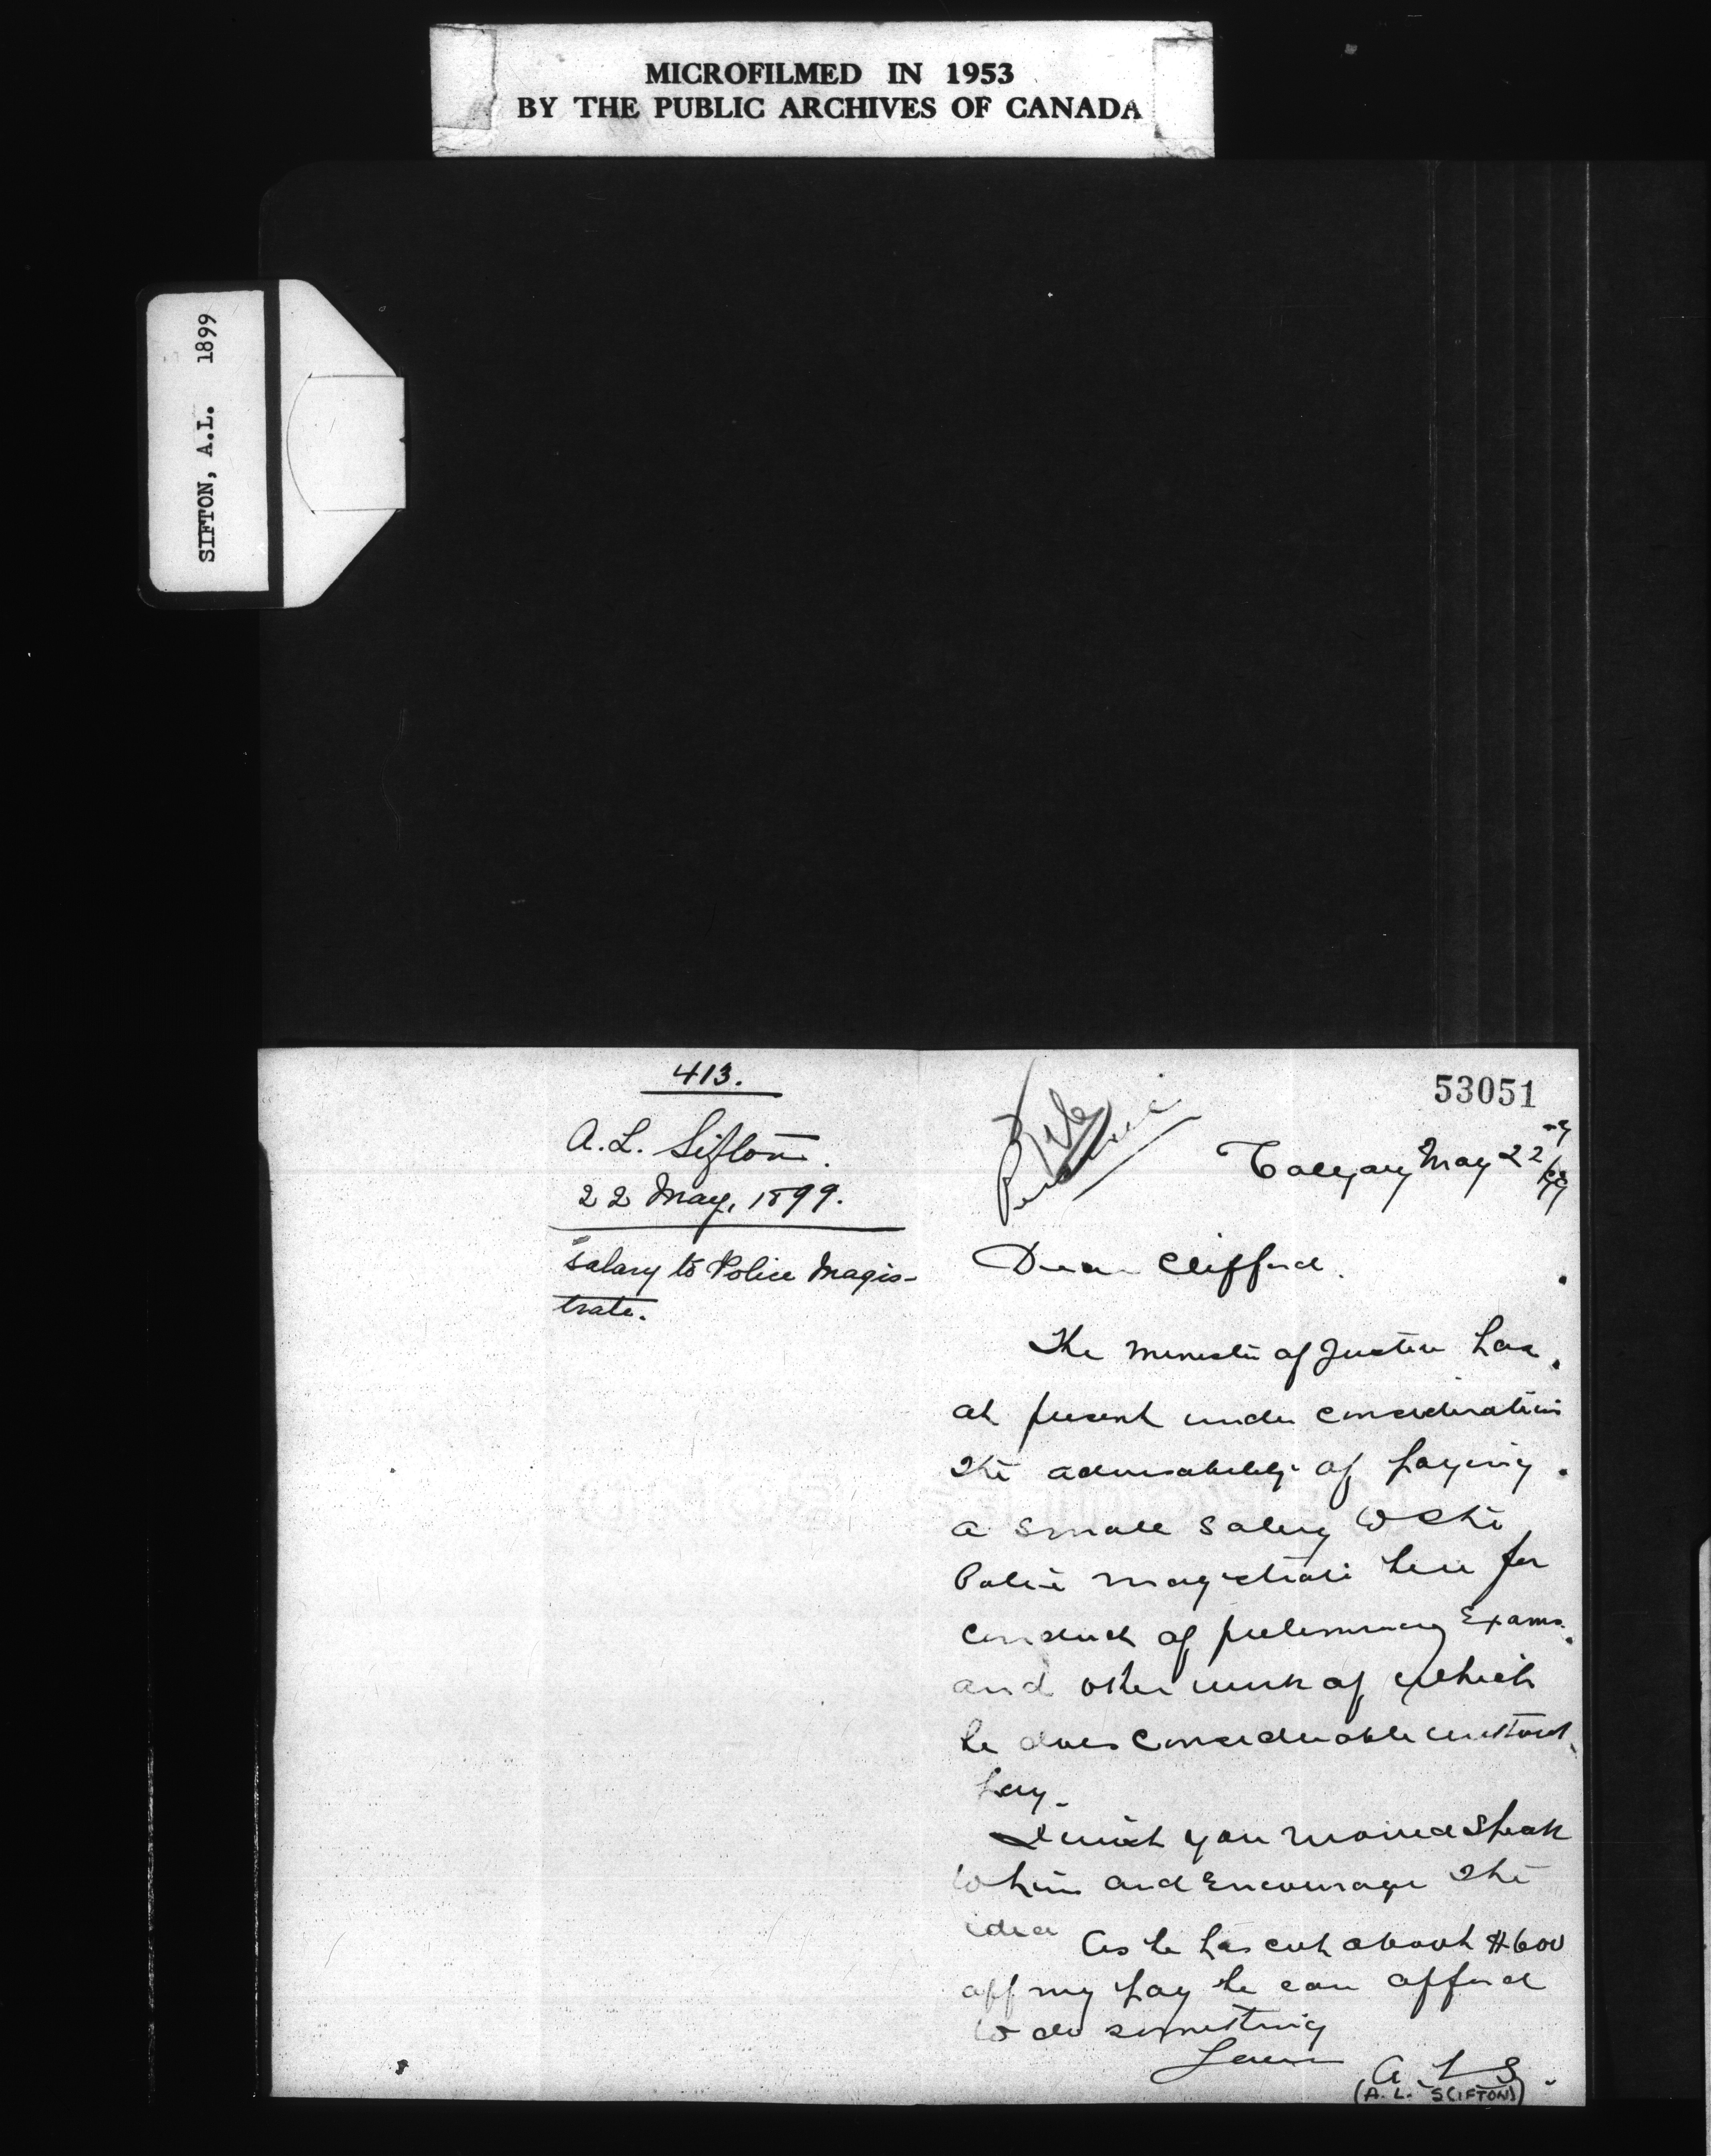 MICROFILMED IN 1953
BY THE PUBLIC ARCHIVES OF CANADA
SIFTON, A.L. 1899
413.
A. L. Sifton.
22 May, 1899.
Salary to Police Magis-
trate.
53051
File
Calgary May 22nd/99
Dear Clifford.
The Minister of Justice has
at present under consideration
the advisability of paying
a small salary to the
Police magistrate here for
conduct of preliminary Exams.
and other work of which
he does considerable without
pay.
I wish you would speak
to him and encourage the
idea
As he has cut about $600
off my pay he can afford
to do something
Yours
A L S.
(A. L. S(IFTON))